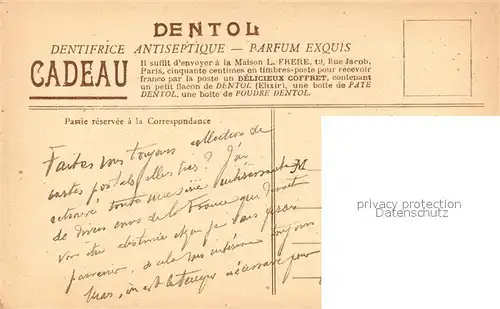 DENTOL
DENTIFRICE ANTISEPTIQUE — PARFUM EXQUIS
CADEAU
Il suffit d'envoyer à la Maison L. FRERE, 19, Rue Jacob,
Paris, cinquante centimes en timbres-poste pour recevoir
franco par la poste un DÉLICIEUX COFFRET, contenant
un petit flacon de DENTOL (Elixir), une boîte de PATE
DENTOL, une boîte de POUDRE DENTOL.
Partie réservée à la Correspondance
Faites vous toujours collection de
cartes postales illustrées ? J'ai
retrouvé toute une série intéressante
de divers envs de la France qui
vous être destinée et que je vais
parvenir, si cela vous intéresse toujours
mais, en est-le temps nécessaire pour
M
privacy protection
Datenschutz